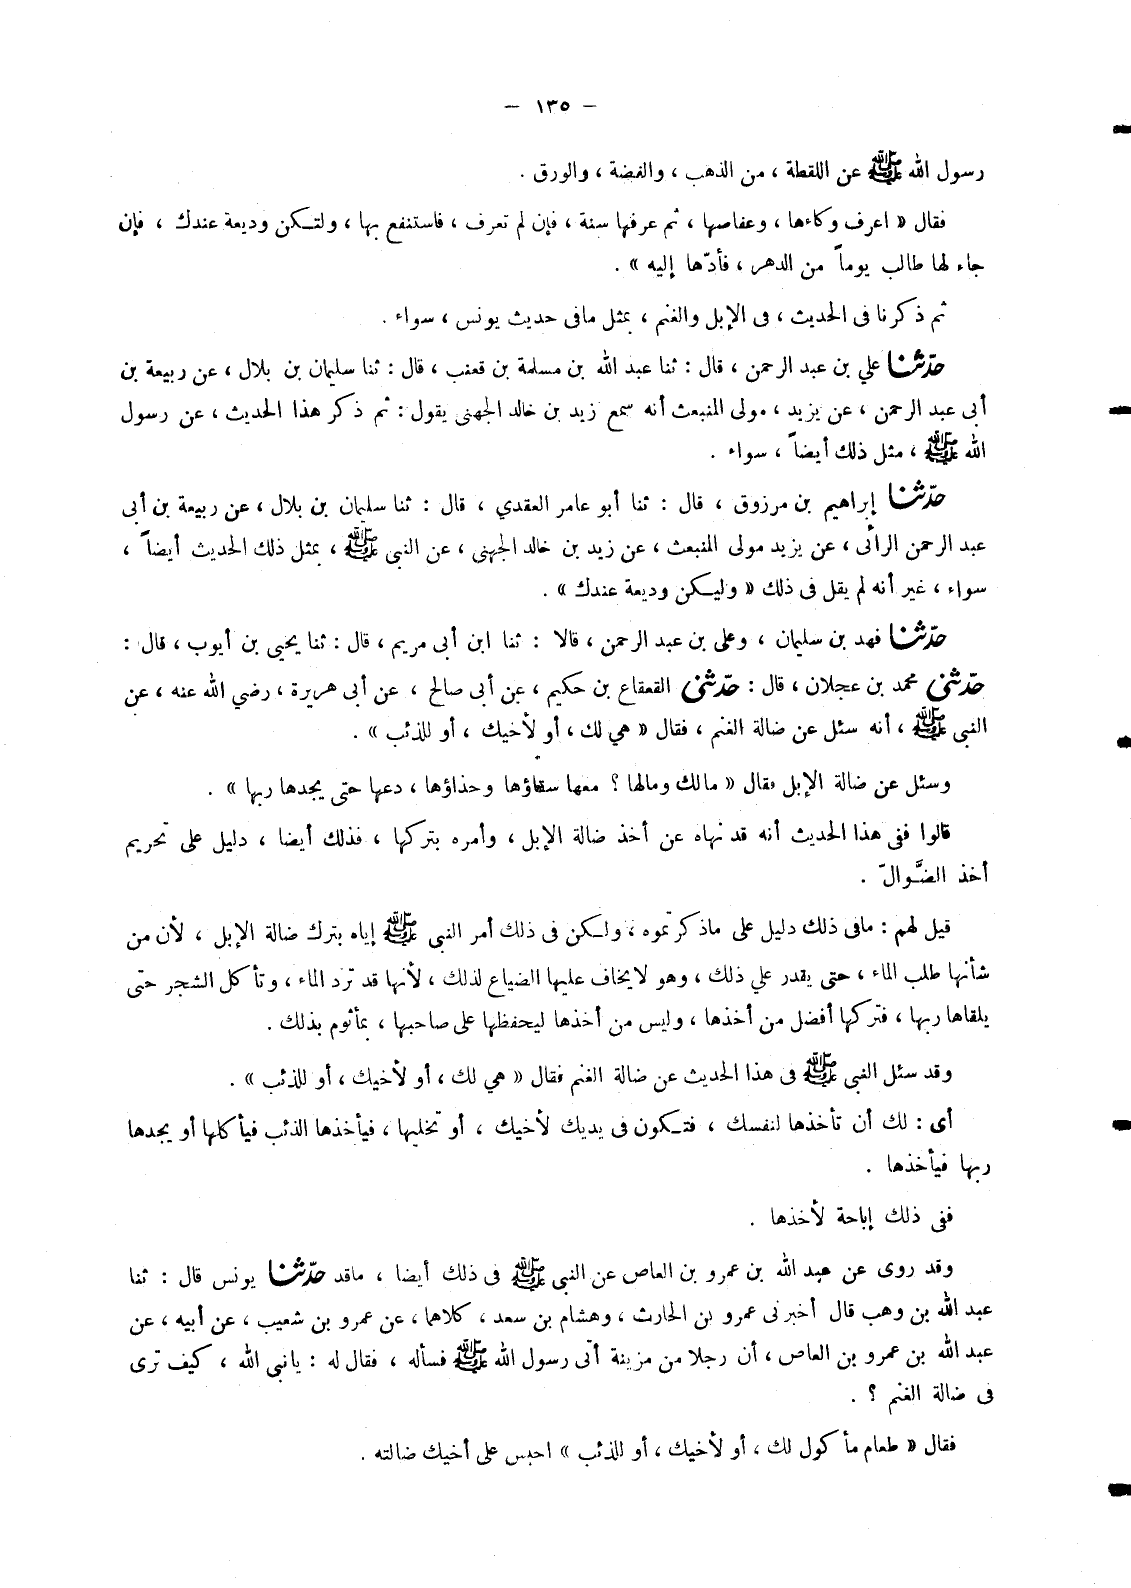 – ١٣٥ –
رسول الله ﷺ عن اللقطة ، من الذهب ، والفضة ، والورق .
فقال « اعرف وكاءها ، وعفاصها ، ثم عرفها سنة ، فإن لم تعرف ، فاستنفع بها ، ولتكن وديعة عندك ، فإن
جاء لها طالب يوماً من الدهر ، فأدّها إليه » .
ثم ذكرنا فى الحديث ، فى الإبل والغنم ، بمثل مافى حديث يونس ، سواء .
حدّثنا علي بن عبد الرحمن ، قال : ثنا عبد الله بن مسلمة بن قعنب ، قال : ثنا سليمان بن بلال ، عن ربيعة بن
أبى عبد الرحمن ، عن يزيد ، مولى المنبعث أنه سمع زيد بن خالد الجهنى يقول : ثم ذكر هذا الحديث ، عن رسول
الله ﷺ ، مثل ذلك أيضاً ، سواء .
حدّثنا إبراهيم بن مرزوق ، قال : ثنا أبو عامر العقدي ، قال : ثنا سليمان بن بلال ، عن ربيعة بن أبى
عبد الرحمن الرائى ، عن يزيد مولى المنبعث ، عن زيد بن خالد الجهنى ، عن النبى ﷺ ، بمثل ذلك الحديث أيضاً ،
سواء ، غير أنه لم يقل فى ذلك « وليكن وديعة عندك » .
حدّثنا فهد بن سليمان ، وعلى بن عبد الرحمن ، قالا : ثنا ابن أبى مريم ، قال : ثنا يحيى بن أيوب ، قال :
حدّثنى محمد بن عجلان ، قال : حدّثنى القعقاع بن حكيم ، عن أبى صالح ، عن أبى هريرة ، رضي الله عنه ، عن
النبى ﷺ ، أنه سئل عن ضالة الغنم ، فقال « هي لك ، أو لأخيك ، أو للذئب » .
وسئل عن ضالة الإبل فقال « مالك ومالها ؟ معها سقاؤها وحذاؤها ، دعها حتى يجدها ربها » .
قالوا ففى هذا الحديث أنه قد نهاه عن أخذ ضالة الإبل ، وأمره بتركها ، فذلك أيضا ، دليل على تحريم
أخذ الضَّوالّ .
قيل لهم : مافى ذلك دليل على ماذكرتموه ، ولكن فى ذلك أمر النبى ﷺ إياه بترك ضالة الإبل ، لأن من
شأنها طلب الماء ، حتى يقدر علي ذلك ، وهو لايخاف عليها الضياع لذلك ، لأنها قد ترد الماء ، وتأكل الشجر حتى
يلقاها ربها ، فتركها أفضل من أخذها ، وليس من أخذها ليحفظها على صاحبها ، بمأثوم بذلك .
وقد سئل النبى ﷺ فى هذا الحديث عن ضالة الغنم فقال « هي لك ، أو لأخيك ، أو للذئب » .
أى : لك أن تأخذها لنفسك ، فتكون فى يديك لأخيك ، أو تخليها ، فيأخذها الذئب فيأكلها أو يجدها
ربها فيأخذها .
ففى ذلك إباحة لأخذها .
وقد روى عن عبد الله بن عمرو بن العاص عن النبى ﷺ فى ذلك أيضا ، ماقد حدّثنا يونس قال : ثنا
عبد الله بن وهب قال أخبرنى عمرو بن الحارث ، وهشام بن سعد ، كلاهما ، عن عمرو بن شعيب ، عن أبيه ، عن
عبد الله بن عمرو بن العاص ، أن رجلا من مزينة أتى رسول الله ﷺ فسأله ، فقال له : يانبى الله ، كيف ترى
فى ضالة الغنم ؟ .
فقال « طعام مأكول لك ، أو لأخيك ، أو للذئب » احبس على أخيك ضالته .